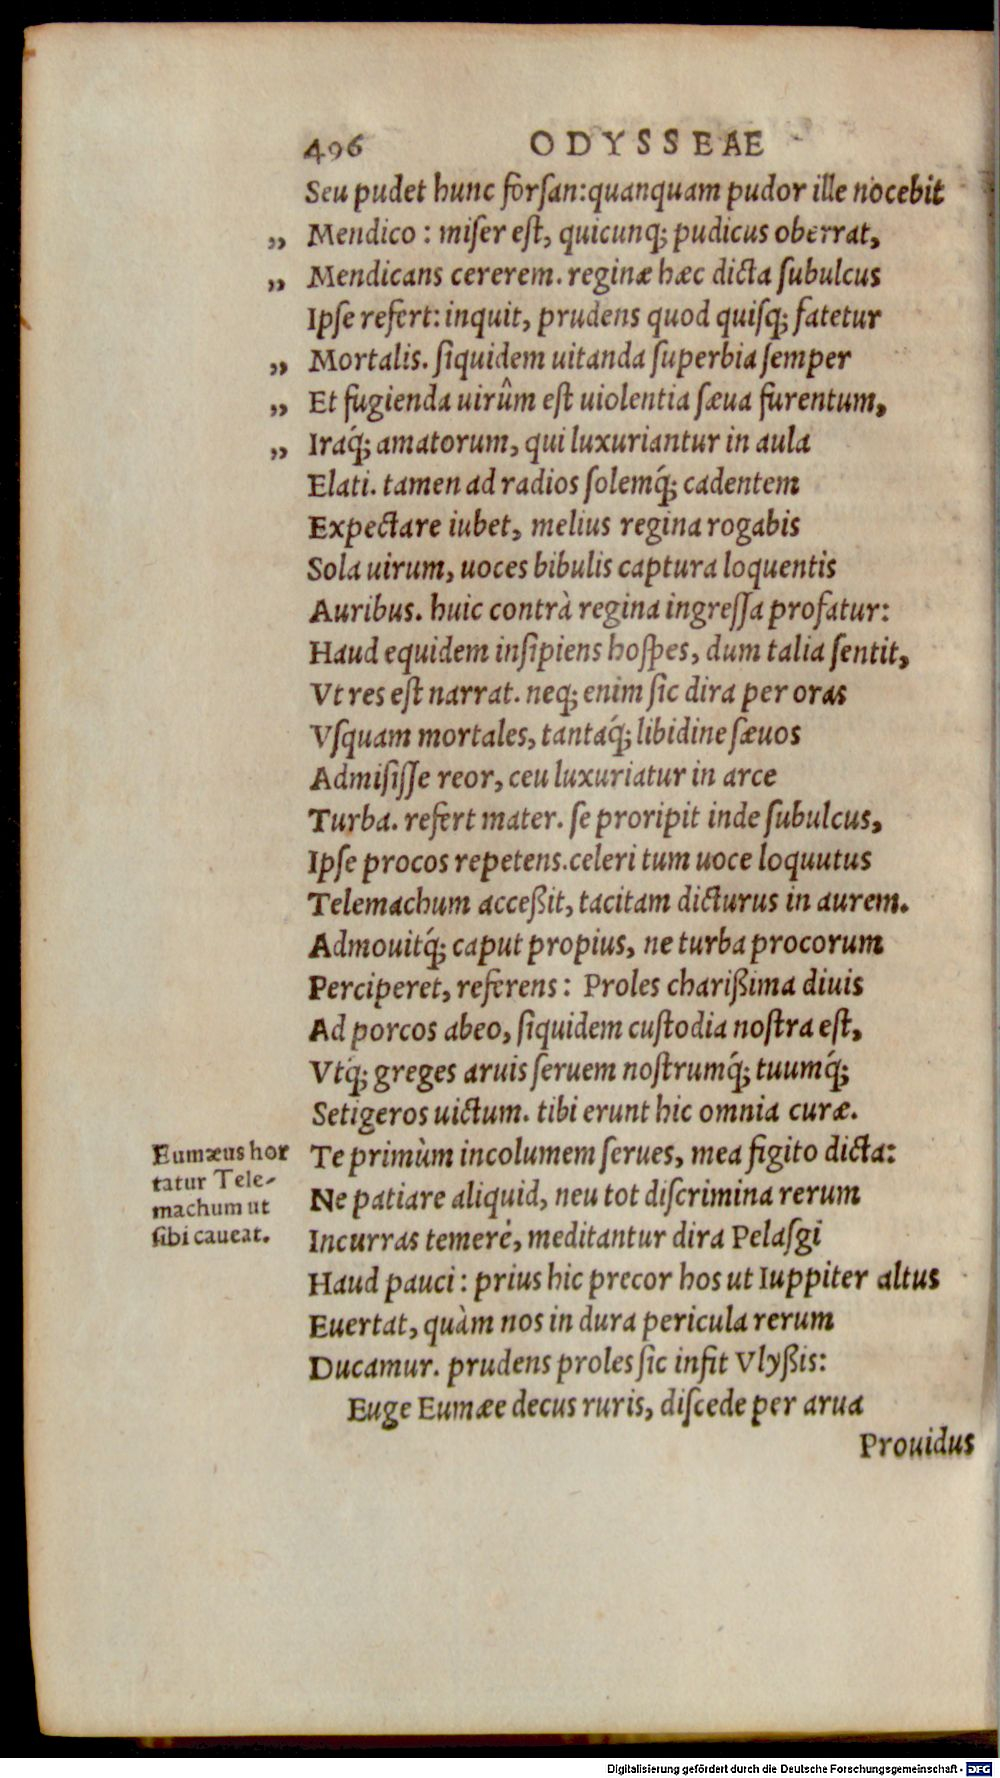 496 ODYSSEAE
Seu pudet hunc forſan: quanquam pudor ille nocebit
„ Mendico : miſer eſt, quicunq; pudicus oberrat,
„ Mendicans cererem. reginæ hæc dicta ſubulcus
Ipſe refert: inquit, prudens quod quiſq; fatetur
„ Mortalis. ſiquidem uitanda ſuperbia ſemper
„ Et fugienda uirûm eſt uiolentia ſæua furentum,
„ Iraq́; amatorum, qui luxuriantur in aula
Elati. tamen ad radios ſolemq́; cadentem
Expectare iubet, melius regina rogabis
Sola uirum, uoces bibulis captura loquentis
Auribus. huic contrà regina ingreſſa profatur:
Haud equidem inſipiens hoſpes, dum talia ſentit,
Vt res eſt narrat. neq; enim ſic dira per oras
Vſquam mortales, tantaq́; libidine ſæuos
Admiſiſſe reor, ceu luxuriatur in arce
Turba. refert mater. ſe proripit inde ſubulcus,
Ipſe procos repetens. celeri tum uoce loquutus
Telemachum acceßit, tacitam dicturus in aurem.
Admouitq́; caput propius, ne turba procorum
Perciperet, referens : Proles charißima diuis
Ad porcos abeo, ſiquidem cuſtodia noſtra eſt,
Vtq́; greges aruis ſeruem noſtrumq́; tuumq́;
Setigeros uictum. tibi erunt hic omnia curæ.
Te primùm incolumem ſerues, mea figito dicta:
Ne patiare aliquid, neu tot diſcrimina rerum
Incurras temerè, meditantur dira Pelaſgi
Haud pauci : prius hic precor hos ut Iuppiter altus
Euertat, quàm nos in dura pericula rerum
Ducamur. prudens proles ſic infit Vlyßis:
Euge Eumæe decus ruris, diſcede per arua
Prouidus
Eumæus hor
tatur Tele-
machum ut
ſibi caueat.
Digitalisierung gefördert durch die Deutsche Forschungsgemeinschaft - DFG